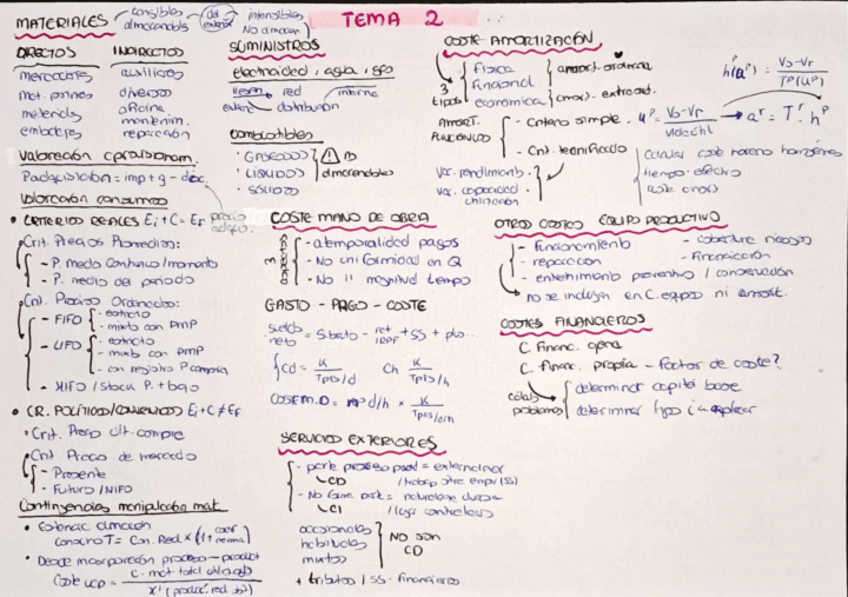 TEMA 2
MATERIALES
tangibles
almacenables
intangibles
No almacen
DIRECTOS INDIRECTOS
mercaderías auxiliares
mat. primas diversos
materiales oficina
embalajes mantenim.
reparación
Valoración aprovisionam.
Padquisición = imp + g - desc.
Valoración consumos
• CRITERIOS REALES Ei + C = Ef
precio
adqui.
Crit. Precios Promedios:
- P. Medio Continuo/momento
- P. medio del periodo
Crit. Precios Ordenados:
- FIFO - estricto
- mixto con PMP
- LIFO - estricto
- mixto con PMP
- con registro P compra
- HIFO / Stock P. + bajo
• CR. POLÍTICOS/CONVENIDOS Ei + C ≠ Ef
• Crit. Precio últ. compra
Crit. Precio de mercado
- Presente
- Futuro / NIFO
Contingencias manipulación mat.
• Externac almacén
consumo T = Con. Real x (1 + coef merma)
• Desde incorporación proceso - product
Coste ucp = C. mat total
SUMINISTROS
electricidad, agua, gas
red interna
distribución
Combustibles
• GASEOSOS
• LÍQUIDOS
• SÓLIDOS
almacenables
COSTE MANO DE OBRA
3
- atemporalidad pagos
- No uniformidad en Q
- No || magnitud tiempo
GASTO - PAGO - COSTE
sueldo neto = S.bruto - ret IRPF + SS + plus...
Cd = K / Tpts/d Ch K / Tpts/h
COSTE M.O = nº d/h x K / Tpts/d/h
SERVICIOS EXTERIORES
- parte proceso prod = externalizar
CD
- No forma part = naturaleza diversa
CI
ocasionales
habituales
mixtos
NO SON
CD
+ tributos / SS. financieros
COSTE AMORTIZACIÓN
3
tipos
física
funcional
económica
amort. ordinaria
amort. extraord.
h^p(u^p) = Vo-Vr / TP(UP)
AMORT.
FUNCIONLOS
- Criterio simple. u^p = Vo-Vr / vida útil → a^r = T^r · h^p
- Crit. tecnificado
Var. rendimiento.
Var. capacidad
utilización
calcular coste horario homogéneo
tiempo efectivo
coste amort
OTROS COSTES EQUIPO PRODUCTIVO
- Funcionamiento
- reparación
- entretenimiento preventivo / conservación
- cobertura riesgos
- Financiación
no se incluyen en C.equipo ni amort.
COSTES FINANCIEROS
C. Financ. ajena
C. Financ. propia - factor de coste?
problemas
determinar capital base
determinar tipo i a aplicar